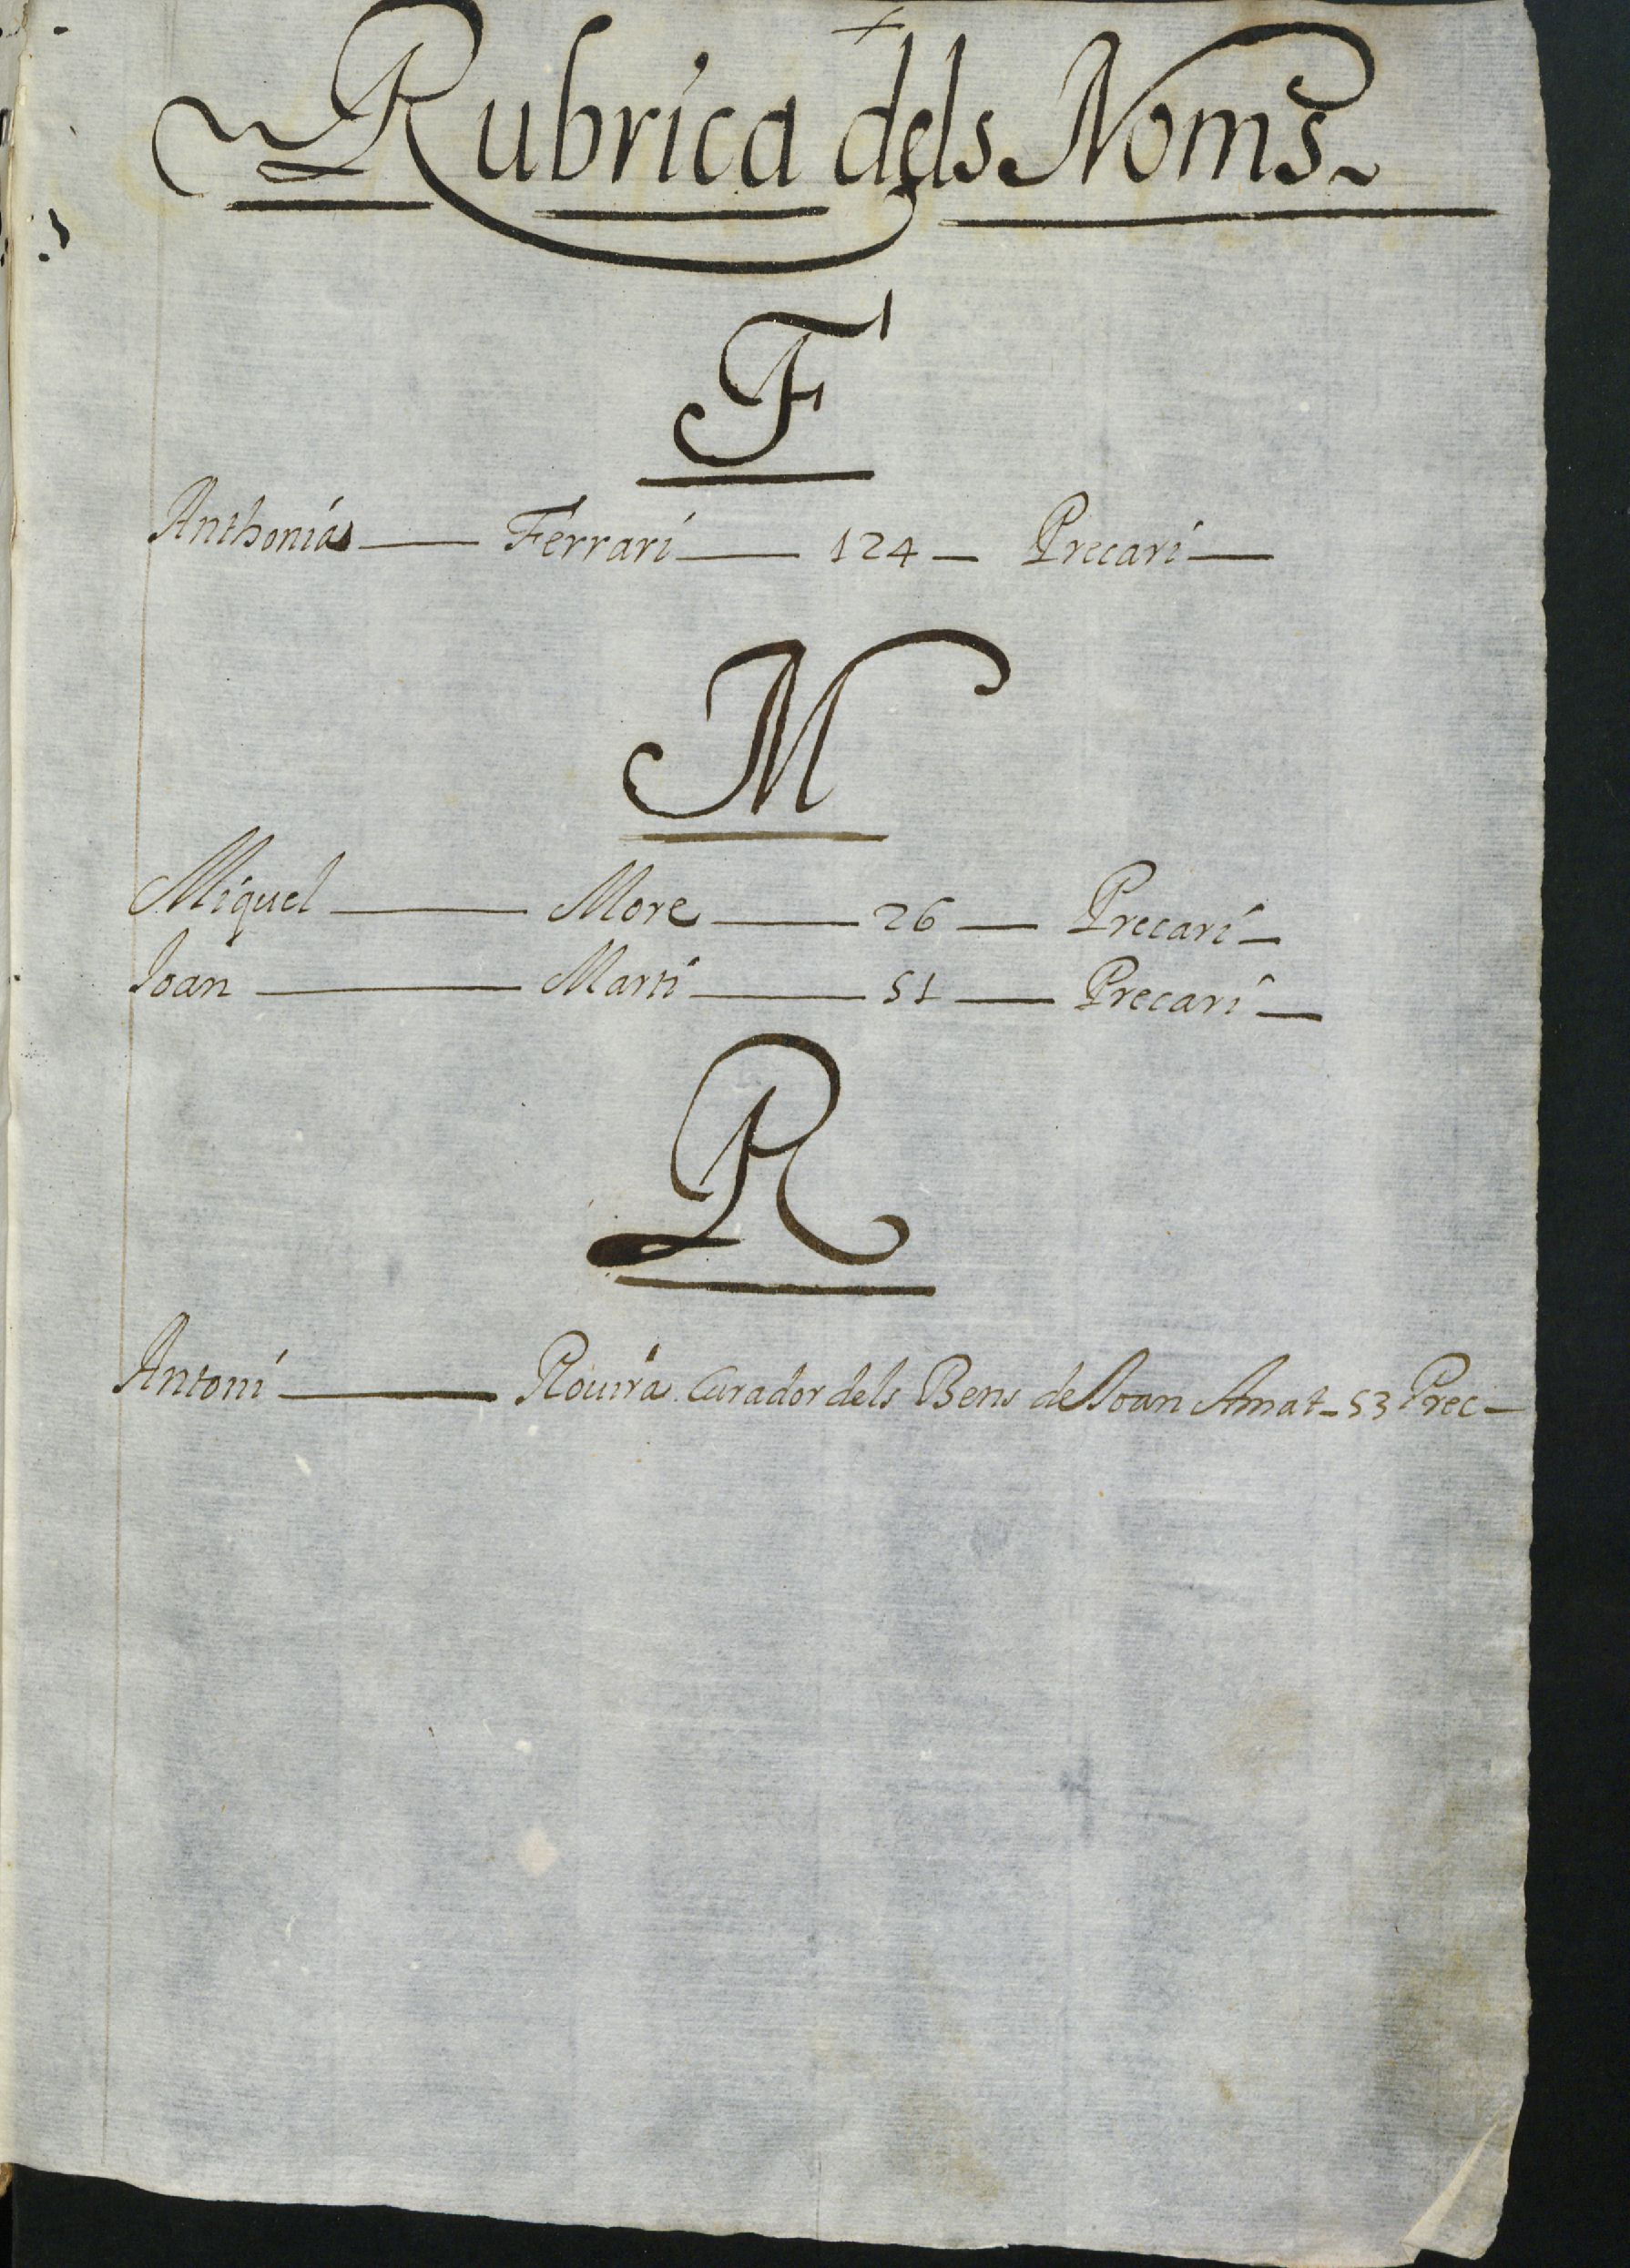 Rubrica dels Noms
F
Anthonia — Ferrari — 124 — Precari —
M
Miquel — More — 26 — Precari —
Joan — Marti — 51 — Precari —
R
Antoni — Rouira Curador dels Bens de Joan Amat - 53 Prec —